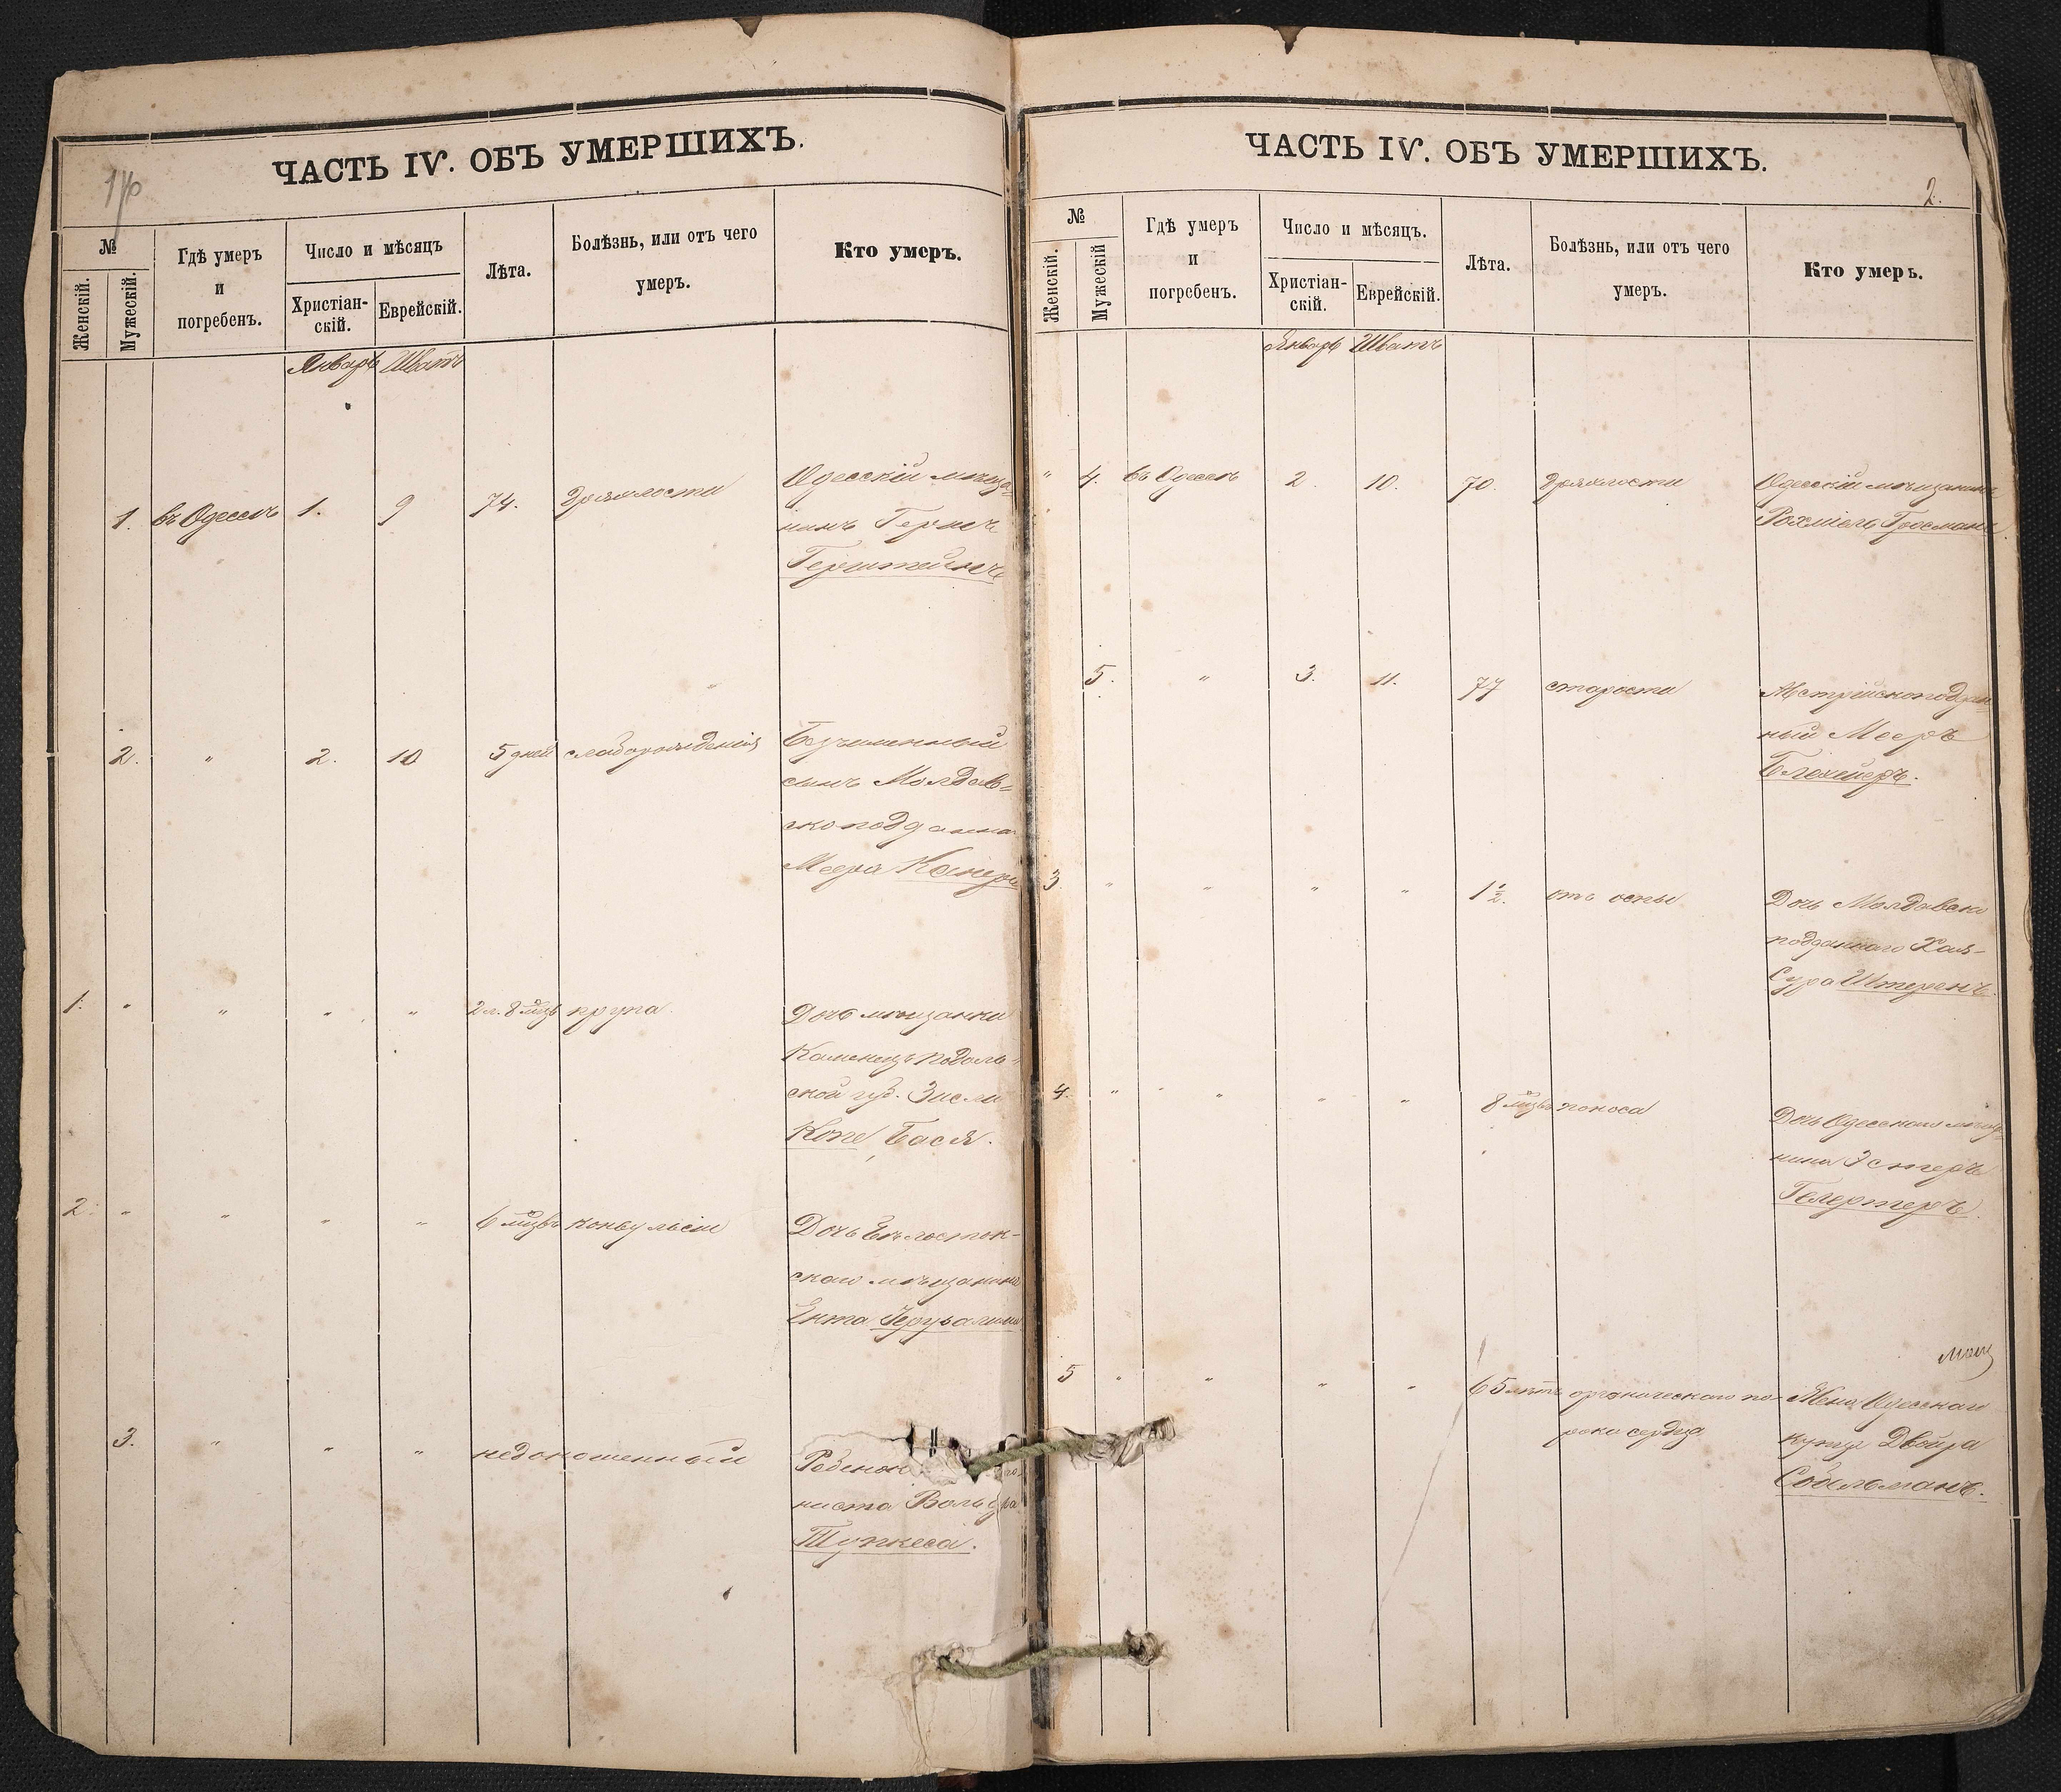 ЧАСТЬ IV. ОБЪ УМЕРШИХЪ.
№
Женскій.
Мужескій.
Гдѣ умеръ
и
погребенъ.
Число и мѣсяцъ
Христіан-
скій.
Еврейскій.
Лѣта.
Болѣзнь, или отъ чего
умеръ.
Кто умеръ.
Январь Шватъ
1. въ Одессѣ 1. 9 74. Дряхлости Одесскій мѣща-
нинъ Герш
Герштейнъ
2. " 2. 10 5 дней слаборожденія Безъименный
сынъ Молдав-
скоподданна
Меера
1. " " " " 2 л. 8 мѣс крупа Дочь мѣщанки
Каменецъ Подоль-
ской губ. Зисли
Копе, Бася.
2. " " " " 6 мѣсъ конвульсіи Дочь Бѣлосток-
скаго мѣщанина
Ента
3. " " " недоношенный Ребенок
ниста
Тункеса.
ЧАСТЬ IV. ОБЪ УМЕРШИХЪ.
2.
№
Женскій.
Мужескій
Гдѣ умеръ
и
погребенъ.
Число и мѣсяцъ.
Христіан-
скій.
Еврейскій.
Лѣта.
Болѣзнь, или отъ чего
умеръ.
Кто умеръ.
Январь Шватъ
" 4. въ Одессѣ 2. 10. 70. Дряхлости Одесскій мѣщанинъ
Рохміель Гросманъ
5. " 3. 11. 77 старости Австрійскоподдан-
ный Мееръ
Блехнеръ.
3 " " " " 1 1/2. отъ оспы Дочь Молдавско
подданнаго Хая-
Сура Штернъ.
4. " " " " 8 мѣсъ поноса Дочь Одесскаго мѣща-
нина Эстеръ
Гелертеръ.
мѣщ
5 " " " " 65 лѣтъ органическаго по- Жена Одесскаго
рока сердца купца Двойра
Собельманъ.